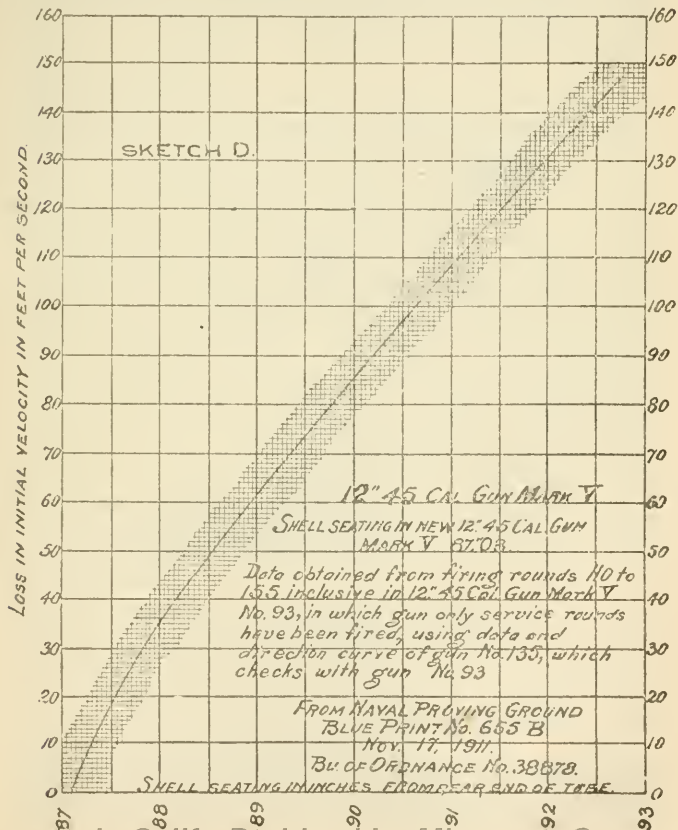 160
150
140
130
120
110
100
90
80
70
60
50
40
30
20
10
0
LOSS IN INITIAL VELOCITY IN FEET PER SECOND.
SKETCH D.
12" 45 CAL GUN MARK V
SHELL SEATING IN NEW 12" 45 CAL GUN
MARK V 87.08.
Data obtained from firing rounds 110 to
155 inclusive in 12" 45 Cal Gun Mark V
No. 93, in which gun only service rounds
have been fired, using data and
direction curve of gun No. 135, which
checks with gun No. 93
FROM NAVAL PROVING GROUND
BLUE PRINT No. 655 B
Nov. 17, 1911.
BU. OF ORDNANCE No. 38878.
SHELL SEATING IN INCHES FROM REAR END OF TUBE.
160
150
140
130
120
110
100
90
80
70
60
50
40
30
20
10
0
87
88
89
90
91
92
93